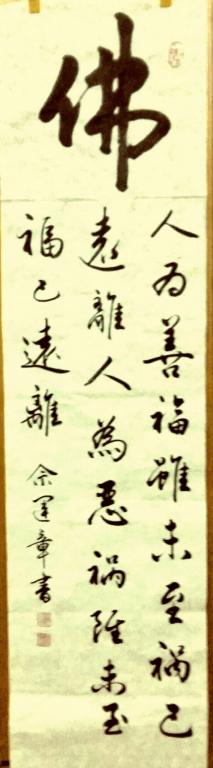 佛
人为善福雖未至祸已
遠離人為惡祸雖未至
福已遠離
佘運章書